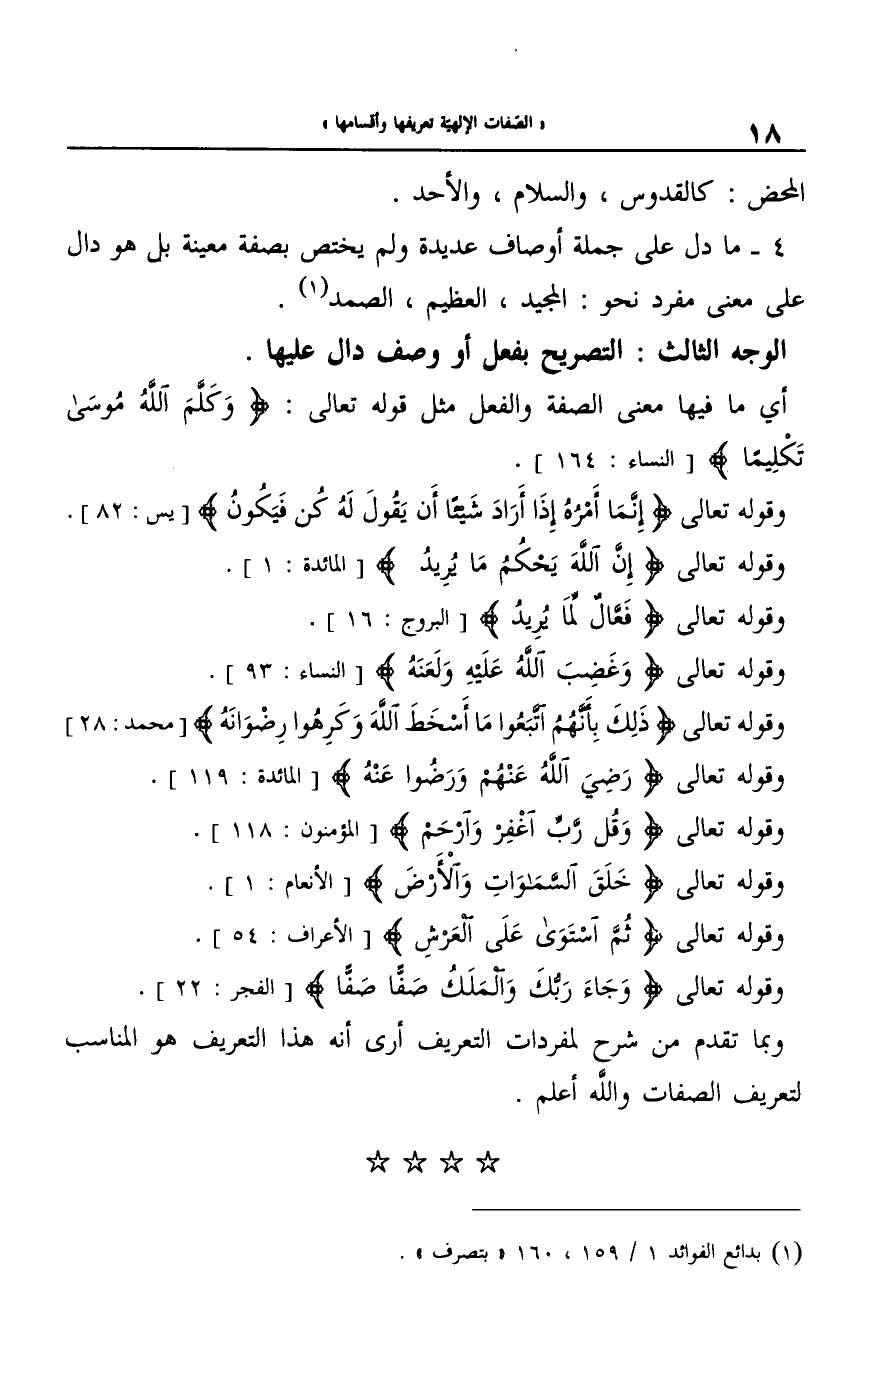 ١٨
« الصفات الإلهية تعريفها وأقسامها »
المحض : كالقدوس ، والسلام ، والأحد .
٤ ـ ما دل على جملة أوصاف عديدة ولم يختص بصفة معينة بل هو دال
على معنى مفرد نحو : المجيد ، العظيم ، الصمد(١) .
الوجه الثالث : التصريح بفعل أو وصف دال عليها .
أي ما فيها معنى الصفة والفعل مثل قوله تعالى : ﴿ وَكَلَّمَ ٱللَّهُ مُوسَىٰ
تَكْلِيمًا ﴾ [ النساء : ١٦٤ ] .
وقوله تعالى ﴿ إِنَّمَا أَمْرُهُ إِذَا أَرَادَ شَيْئًا أَن يَقُولَ لَهُ كُن فَيَكُونُ ﴾ [ يس : ٨٢ ] .
وقوله تعالى ﴿ إِنَّ ٱللَّهَ يَحْكُمُ مَا يُرِيدُ ﴾ [ المائدة : ١ ] .
وقوله تعالى ﴿ فَعَّالٌ لِّمَا يُرِيدُ ﴾ [ البروج : ١٦ ] .
وقوله تعالى ﴿ وَغَضِبَ ٱللَّهُ عَلَيْهِ وَلَعَنَهُ ﴾ [ النساء : ٩٣ ] .
وقوله تعالى ﴿ ذَٰلِكَ بِأَنَّهُمُ ٱتَّبَعُوا مَا أَسْخَطَ ٱللَّهَ وَكَرِهُوا رِضْوَانَهُ ﴾ [ محمد : ٢٨ ]
وقوله تعالى ﴿ رَضِيَ ٱللَّهُ عَنْهُمْ وَرَضُوا عَنْهُ ﴾ [ المائدة : ١١٩ ] .
وقوله تعالى ﴿ وَقُل رَّبِّ ٱغْفِرْ وَٱرْحَمْ ﴾ [ المؤمنون : ١١٨ ] .
وقوله تعالى ﴿ خَلَقَ ٱلسَّمَٰوَاتِ وَٱلْأَرْضَ ﴾ [ الأنعام : ١ ] .
وقوله تعالى ﴿ ثُمَّ ٱسْتَوَىٰ عَلَى ٱلْعَرْشِ ﴾ [ الأعراف : ٥٤ ] .
وقوله تعالى ﴿ وَجَاءَ رَبُّكَ وَٱلْمَلَكُ صَفًّا صَفًّا ﴾ [ الفجر : ٢٢ ] .
وبما تقدم من شرح لمفردات التعريف أرى أنه هذا التعريف هو المناسب
لتعريف الصفات واللَّه أعلم .
☆ ☆ ☆ ☆
(١) بدائع الفوائد ١ / ١٥٩ ، ١٦٠ « بتصرف » .